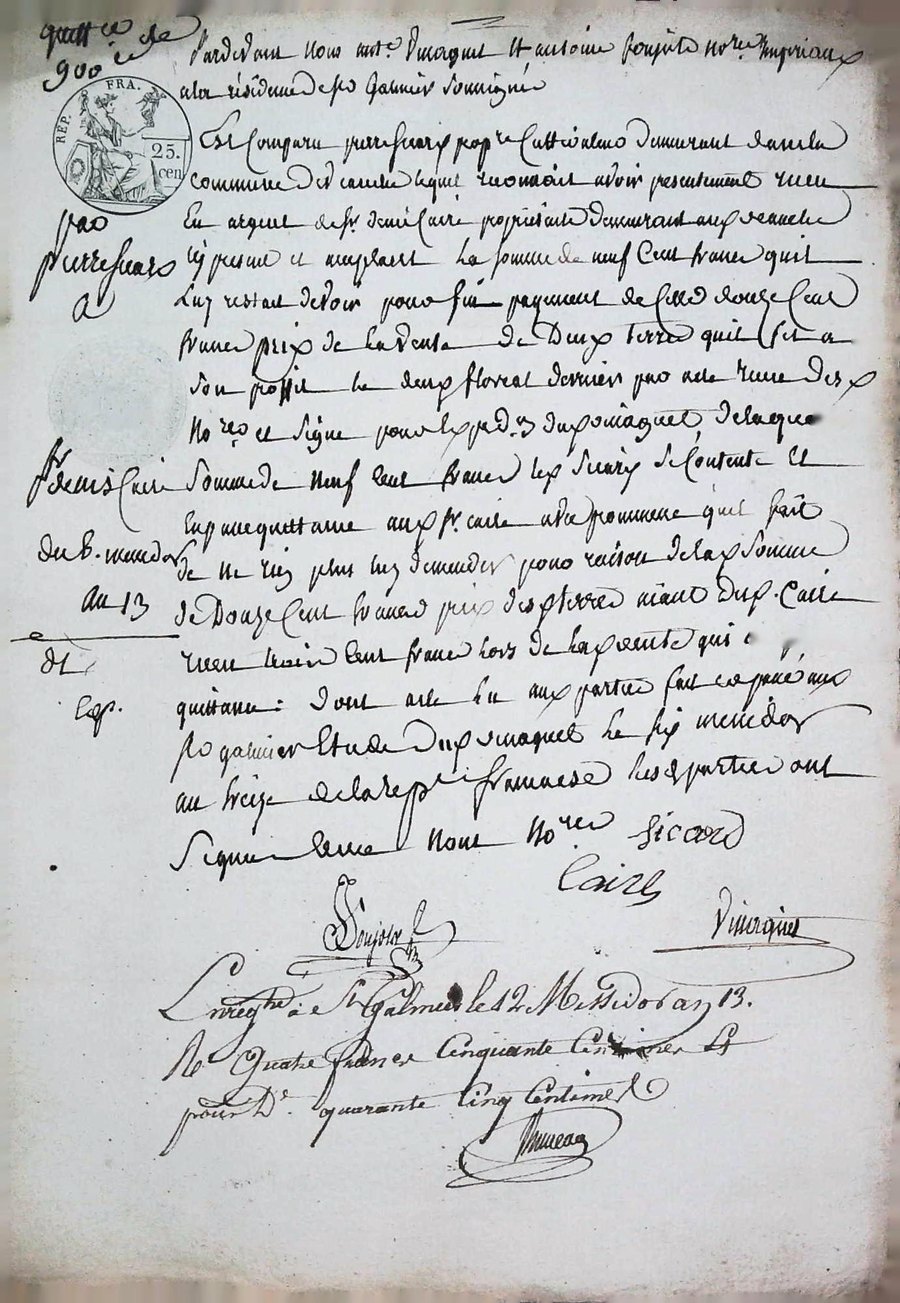 quittce de
900 fr
REP. FRA.
25.
cen
par
pierre sicard
a
sr denis Caire
du 6. messidor
an 13
dt
Exp.
Pardevant nous mre. Vinoquet et antoine notres. Imperiaux
a la résidence de st Galmier soussignés
Est Comparu pierre sicard propre. Cultivateur demeurant dans la
commune de lequel reconnait avoir presentement recu
En argent de sr. denis Caire propriétaire demeurant aux
icy present et acceptant la somme de neuf Cent francs quil
Luy restait devoir pour fin payement de Celle douze Cent
francs prix de la vente de Deux terres quil fit a
son proffit le deux floreal dernier par acte recue desd
Nores. et signé pour Exped. dud de laquelle
Somme de neuf Cent francs led sicard se Contente et
En passe quittance aud sr. caire avec promesse quil fait
de ne rien plus luy demander pour raison de lad somme
de Douze Cent francs prix desd terres aiant dud. Caire
recu trois Cent francs lors de lad vente qui
quittance : dont acte lu aux parties fait et passé aud
st galmier Etude dud le six messidor
an treize de la repe. francaise lesd parties ont
Signé avec nous nores sicard
Caire
Enregtré à St Galmier le 12 Messidor an 13.
R Quatre francs Cinquante Centimes Et
pour De. quarante Cinq Centimes